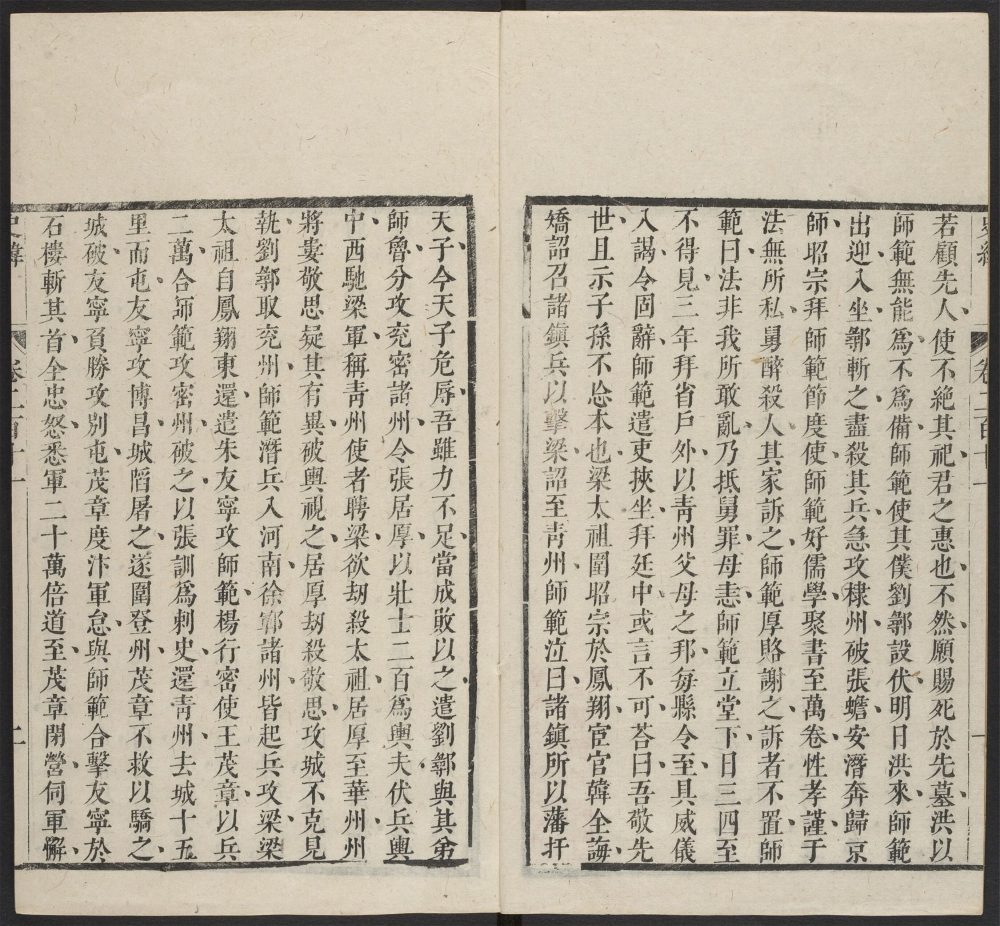 卷二百十一
一
若顧先人使不絕其祀君之惠也不然願賜死於先墓洪以
師範無能爲不爲備師範使其僕劉鄩設伏明日洪來師範
出迎入坐鄩斬之盡殺其兵急攻棣州破張蟾安潛奔歸京
師昭宗拜師範節度使師範好儒學聚書至萬卷性孝謹于
法無所私舅醉殺人其家訴之師範厚賂謝之訴者不置師
範曰法非我所敢亂乃抵舅罪母恚師範立堂下日三四至
不得見三年拜省戶外以青州父母之邦每縣令至具威儀
入謁令固辭師範遣吏挾坐拜廷中或言不可荅曰吾敬先
世且示子孫不忘本也梁太祖圍昭宗於鳳翔宦官韓全誨
矯詔召諸鎮兵以擊梁詔至青州師範泣曰諸鎮所以藩扞
天子今天子危辱吾雖力不足當成敗以之遣劉鄩與其弟
師魯分攻兗密諸州令張居厚以壯士二百爲輿夫伏兵輿
中西馳梁軍稱青州使者聘梁欲刼殺太祖居厚至華州州
將婁敬思疑其有異破輿視之居厚刼殺敬思攻城不克見
執劉鄩取兗州師範潛兵入河南徐鄆諸州皆起兵攻梁梁
太祖自鳳翔東還遣朱友寧攻師範楊行密使王茂章以兵
二萬合師範攻密州破之以張訓爲刺史還青州去城十五
里而屯友寧攻博昌城陷屠之遂圍登州茂章不救以驕之
城破友寧負勝攻別屯茂章度汴軍怠與師範合擊友寧於
石樓斬其首全忠怒悉軍二十萬倍道至茂章閉營伺軍懈
史緯
卷二百十一
二